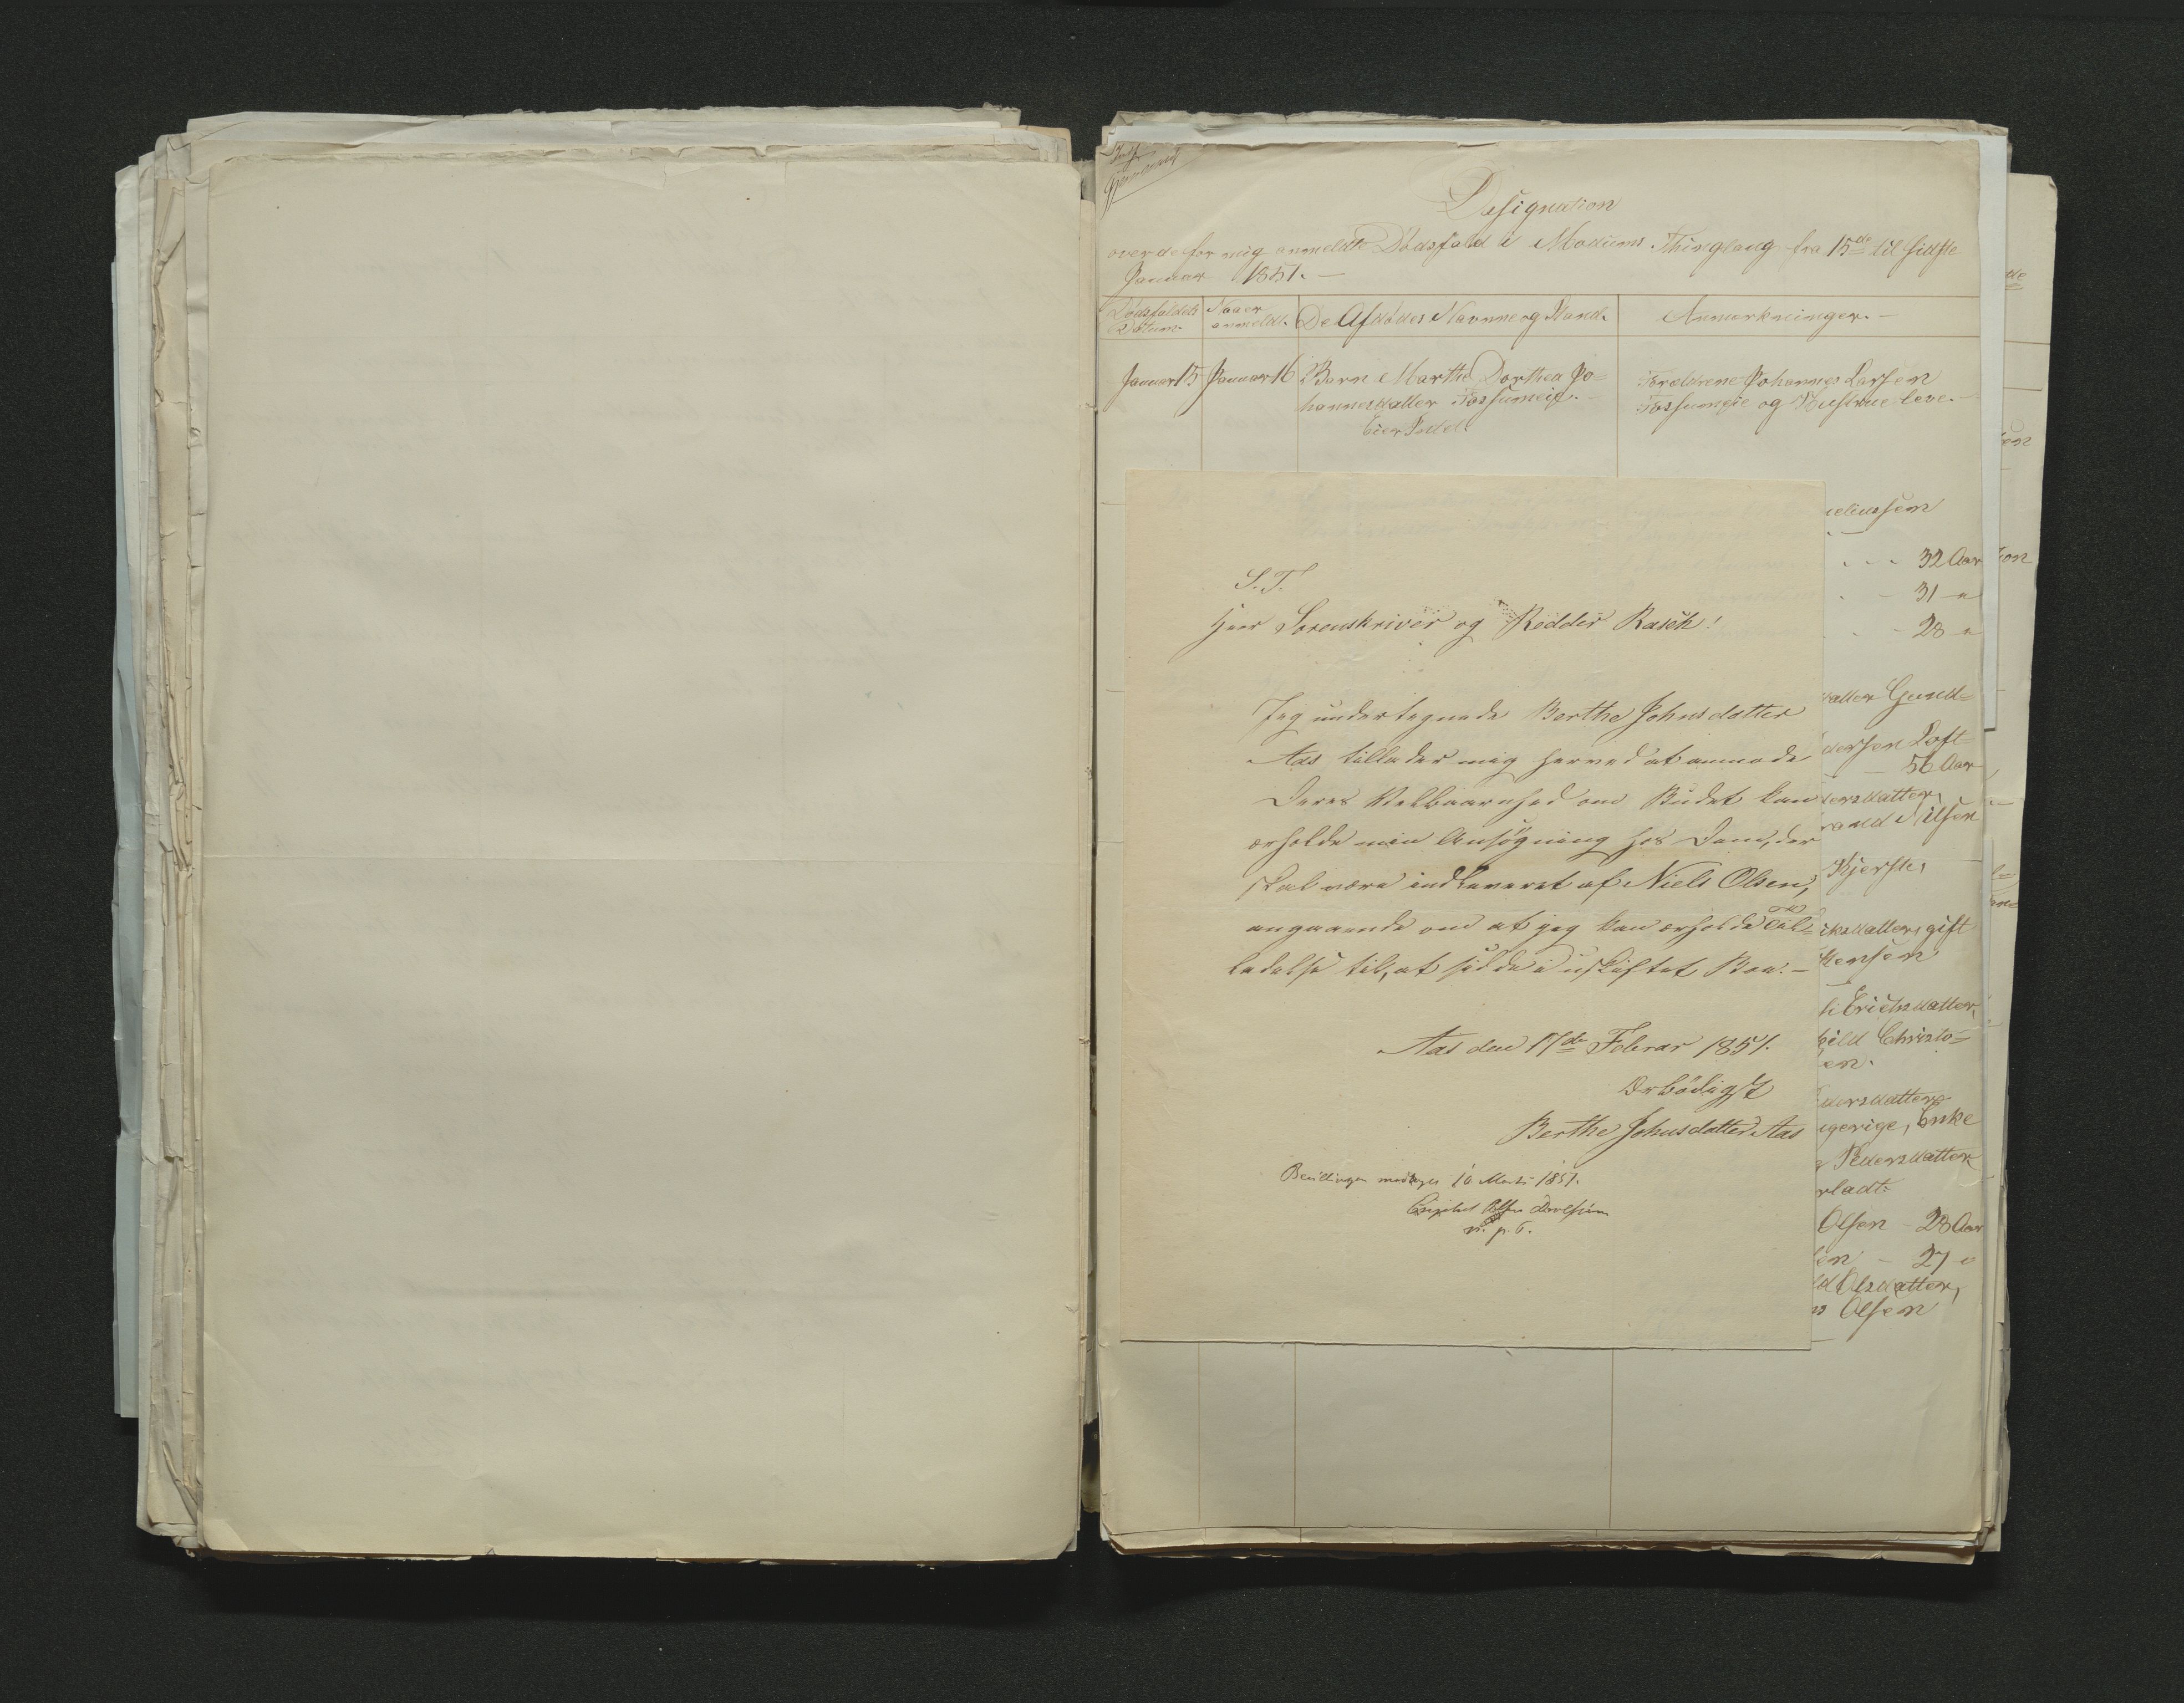 Designation
over de for mig anmeldte Dødsfald i Modums Thinglaug fra 15de til sidste
Januar 1851.
Dødsfaldets Datum.
Naaer anmeldt.
De Afdødes Navnne og Stand.
Anmerkninger.
Januar 15 Januar 16 Barn Marthe Dorthea Jo=
hannesdatter Fossumeie.
Eier Intet.
Foreldrene Johannes Larsen
Fossumeie og Hustrue leve.
S. T.
Herr Sorenskriver og Ridder Rasch!
Jeg undertegnede Berthe Johnsdatter
Aas tillader mig herved at anmode
Deres Velbaarnhed om Budet kan
erholde min Ansøgning hos Dem, der
skal være indleveret af Niels Olsen,
angaaende om at jeg kan erholde Til=
ladelse til, at sidde i uskiftet Boe.
Aas den 17de Februar 1851.
Ærbødigst
Berthe Johnsdatter Aas
Bevillingen modtaget 10 Marts 1851.
m. p. P.
32 Aar
31
28
datter Gund=
dersen Loft
56 Aar
dersdatter,
Nilsen
Kjersti
datter, gift
Erichsdatter,
Christo=
en.
dersdatter
gerige, Enke
Pedersdatter
Olsen 28 Aar
en 27
Olsdatter,
Olsen